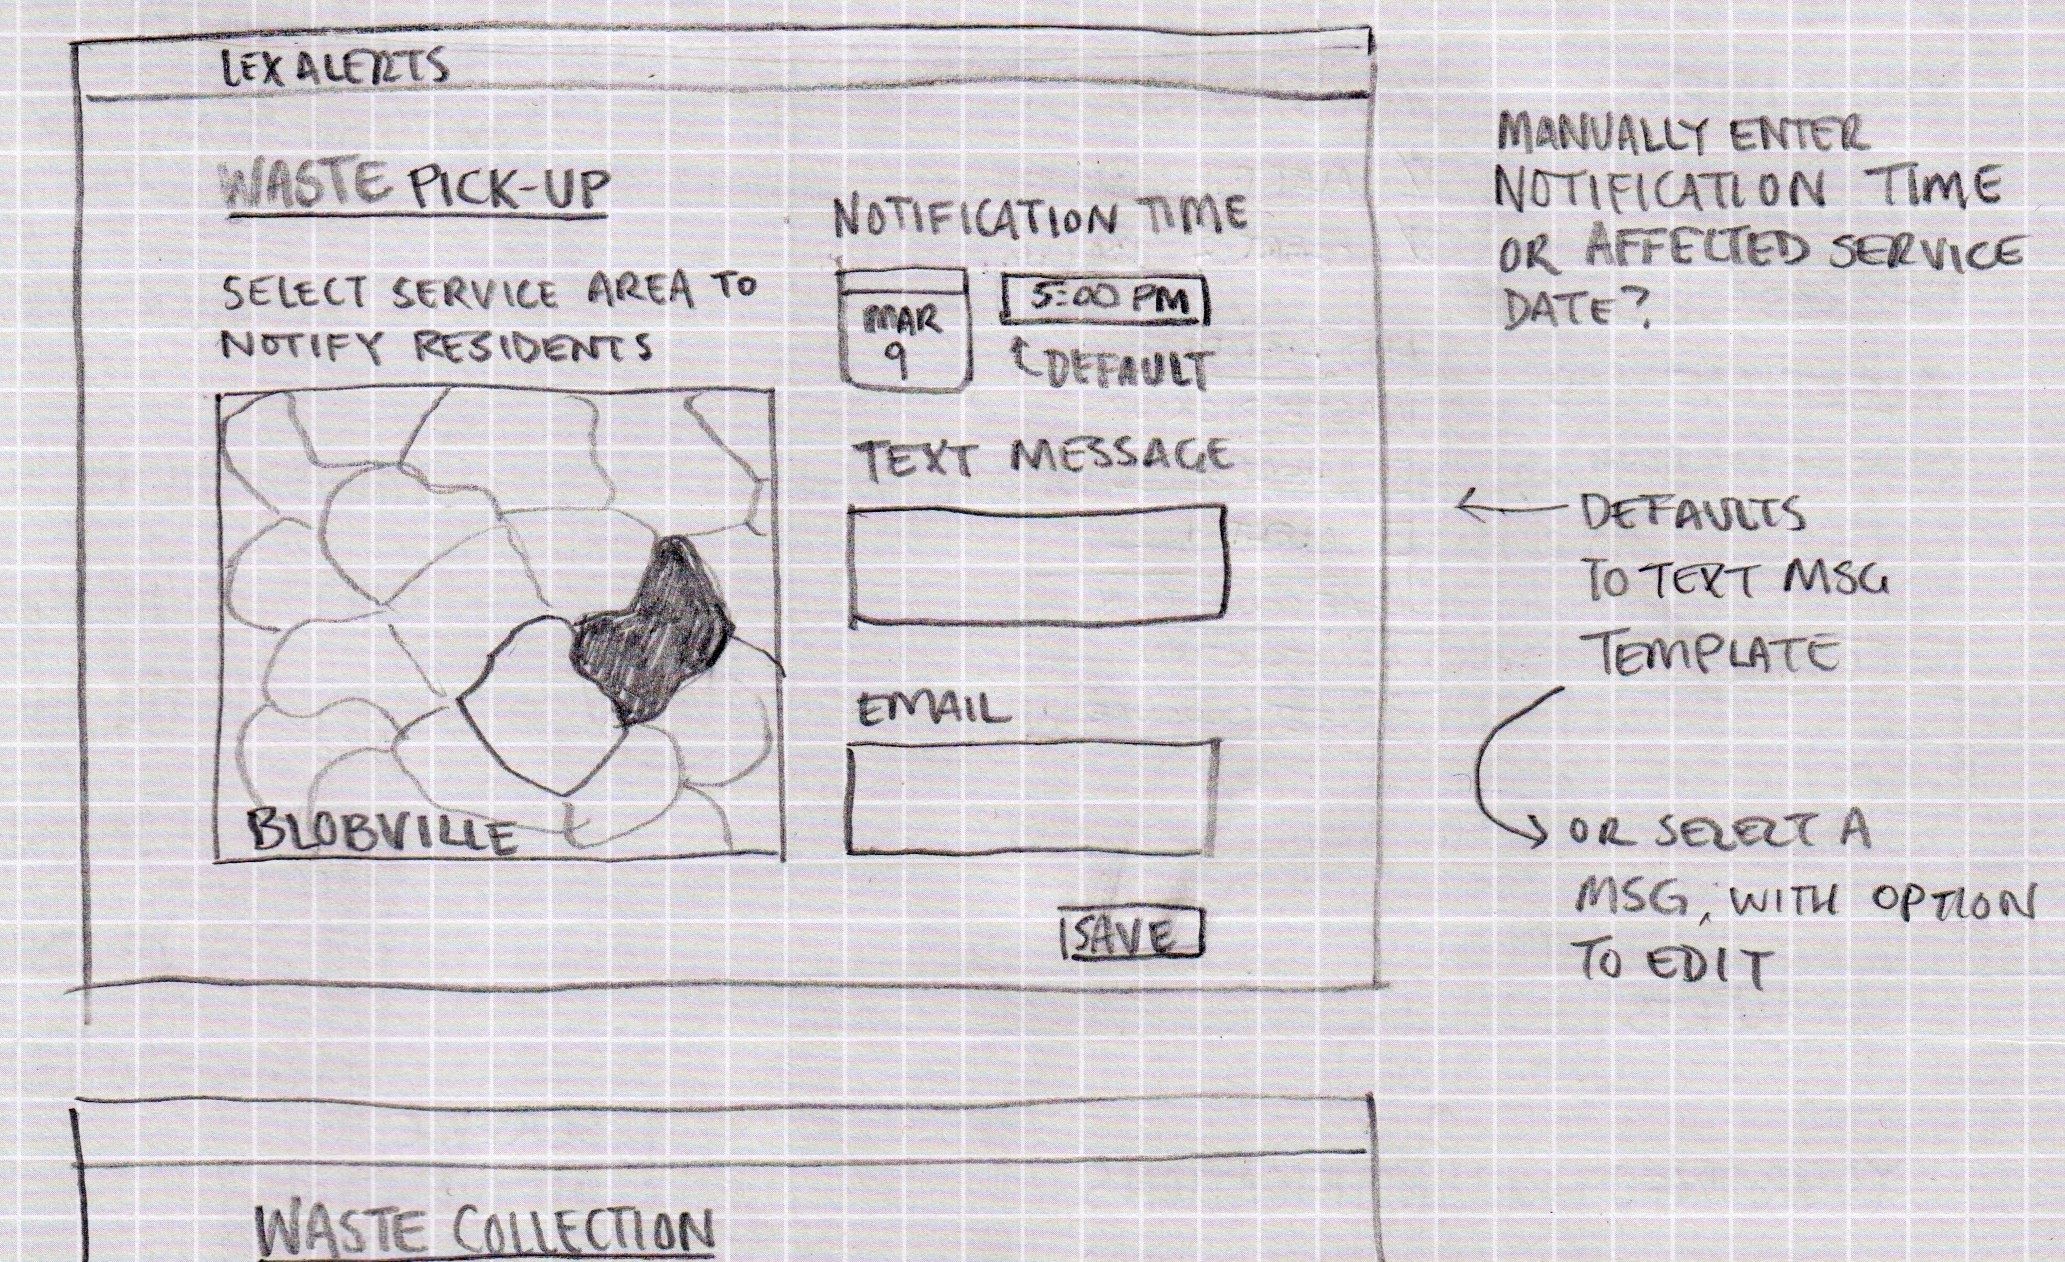 LEXALERTS
WASTE PICK-UP
SELECT SERVICE AREA TO
NOTIFY RESIDENTS
BLOBVILLE
NOTIFICATION TIME
MAR
9
5:00 PM
DEFAULT
TEXT MESSAGE
EMAIL
SAVE
MANUALLY ENTER
NOTIFICATION TIME
OR AFFECTED SERVICE
DATE?
← DEFAULTS
TO TEXT MSG
TEMPLATE
OR SELECT A
MSG, WITH OPTION
TO EDIT
WASTE COLLECTION